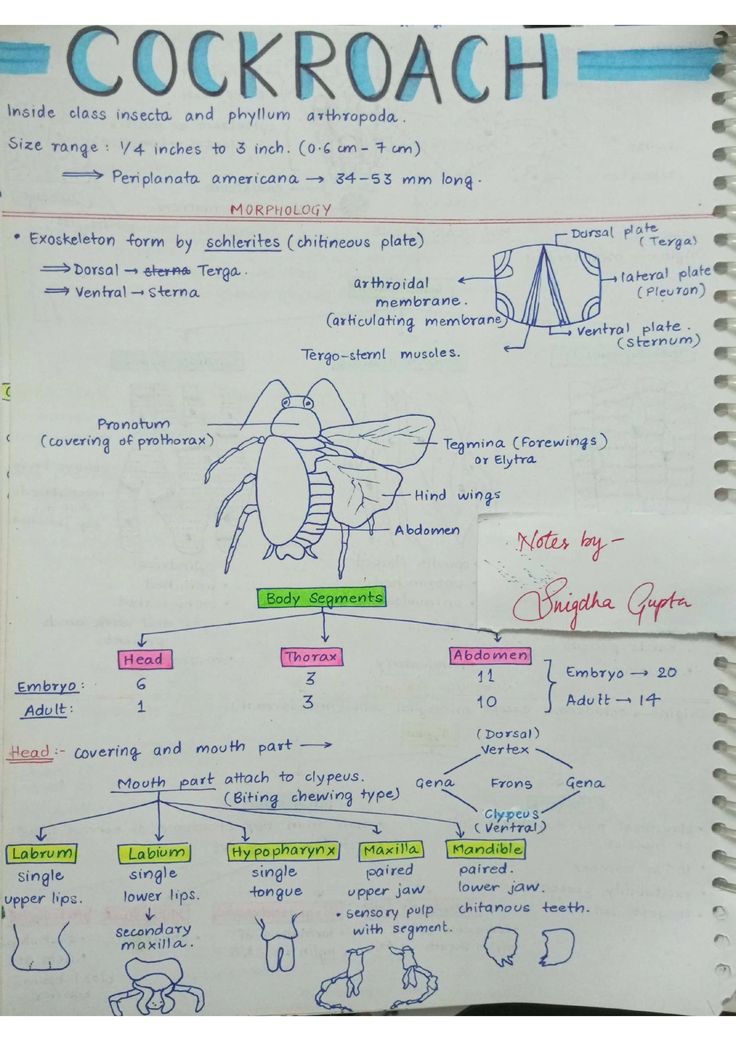 COCKROACH
Inside class insecta and phyllum arthropoda.
Size range : 1/4 inches to 3 inch. (0.6 cm - 7 cm)
⟹ Periplanata americana → 34-53 mm long.
MORPHOLOGY
• Exoskeleton form by schlerites (chitineous plate)
⟹ Dorsal → sterna Terga.
⟹ Ventral → Sterna
Dorsal plate
(Terga)
lateral plate
(Pleuron)
Ventral plate.
(Sternum)
arthroidal
membrane.
(articulating membrane)
Tergo-sternl muscles.
Pronotum
(covering of prothorax)
Tegmina (Forewings)
or Elytra
Hind wings
Abdomen
Notes by -
Snigdha Gupta
Body Segments
Head Thorax Abdomen
Embryo : 6 3 11 Embryo → 20
Adult : 1 3 10 Adult → 14
Head :- covering and mouth part →
(Dorsal)
Vertex
Gena Frons Gena
Clypeus
(Ventral)
Mouth part attach to clypeus.
(Biting chewing type)
Labrum
single
upper lips.
Labium
single
lower lips.
↓
secondary
maxilla.
Hypopharynx
single
tongue
Maxilla
paired
upper jaw
• sensory pulp
with segment.
Mandible
paired.
lower jaw.
chitanous teeth.